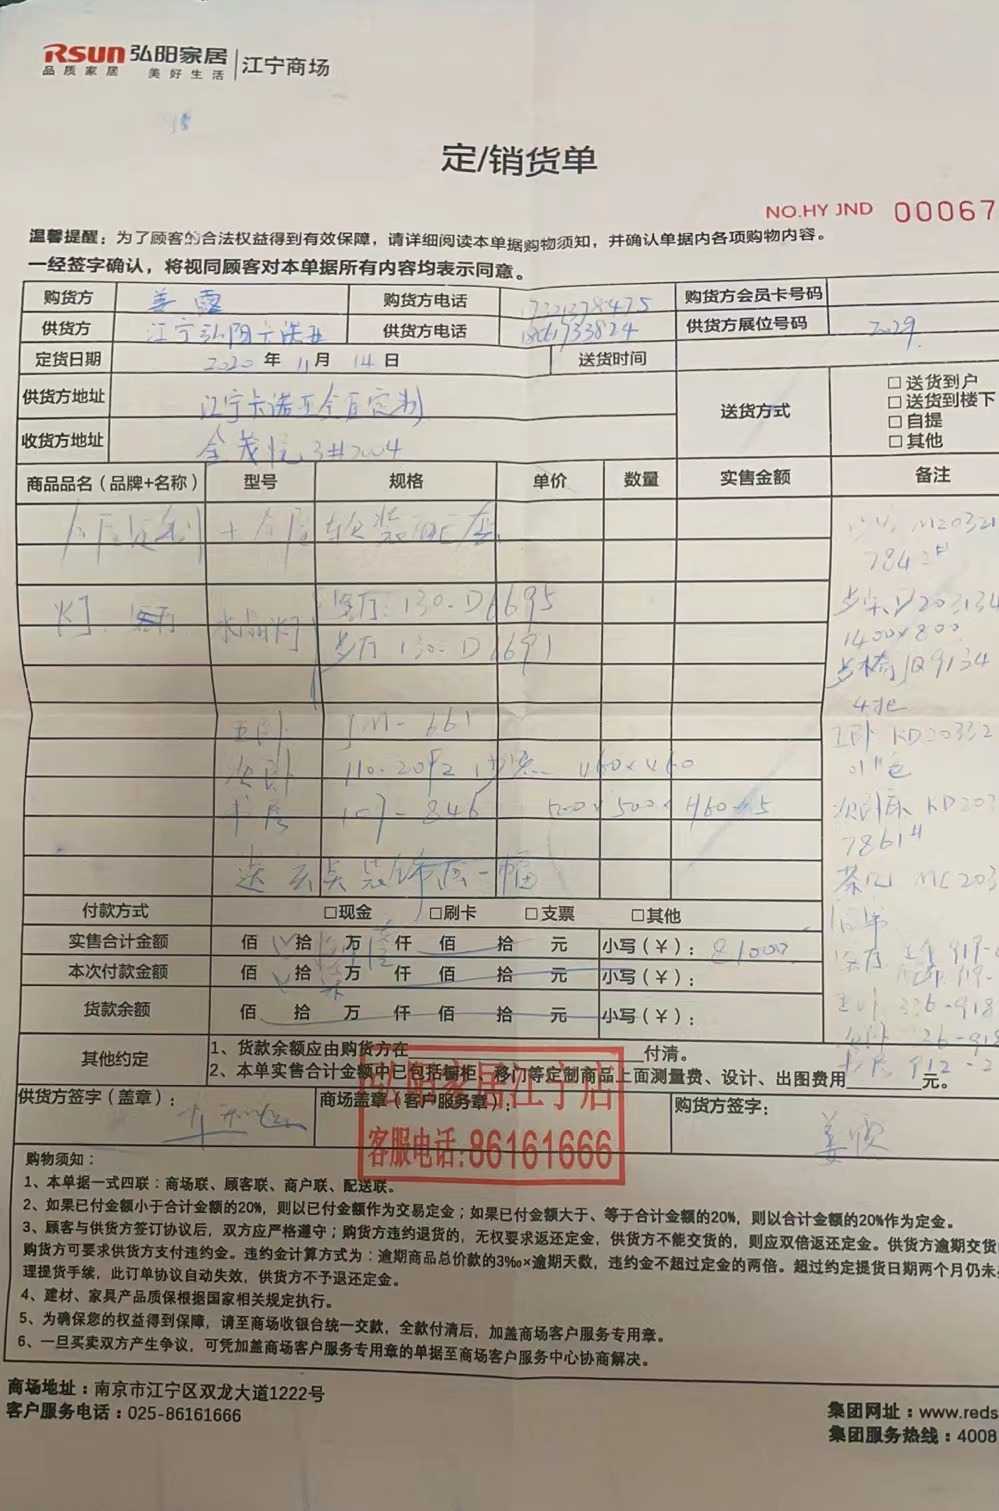 Rsun 弘阳家居 江宁商场
品质家居 美好生活
定/销货单
NO.HY JND 00067
温馨提醒：为了顾客的合法权益得到有效保障，请详细阅读本单据购物须知，并确认单据内各项购物内容。
一经签字确认，将视同顾客对本单据所有内容均表示同意。
购货方 姜露 购货方电话 购货方会员卡号码
供货方 江宁弘阳卡诺亚 供货方电话 18061933824 供货方展位号码 2029
定货日期 2020 年 11 月 14 日 送货时间
供货方地址 江宁卡诺亚全屋定制 送货方式 □送货到户
□送货到楼下
□自提
□其他
收货方地址 金茂悦3#2004
商品品名（品牌+名称） 型号 规格 单价 数量 实售金额 备注
全屋定制 + 全屋软装配套
灯 水晶灯 客厅：130-D6695
130-D6691
主卧 JM-661
次卧 110-2092 460×460
书房 107-846 500×500×460
送 装饰画一幅
M20321
784
D203134
1400×800
JQ9134
主卧 KD20332
次卧床 KD203
7861#
茶几 MC203
窗帘
客厅 917-
主卧 336-918
次卧 26-918
书房 912-2
付款方式 □现金 □刷卡 □支票 □其他
实售合计金额 佰 拾 捌 万 壹 仟 佰 拾 元 小写（¥）：81000
本次付款金额 佰 拾 万 仟 佰 拾 元 小写（¥）：
货款余额 佰 拾 万 仟 佰 拾 元 小写（¥）：
其他约定 1、货款余额应由购货方在 付清。
2、本单实售合计金额中已包括橱柜、移门等定制商品上面测量费、设计、出图费用 元。
供货方签字（盖章）： 商场盖章（客户服务章）： 购货方签字：
弘阳家居江宁店
客服电话:86161666
购物须知：
1、本单据一式四联：商场联、顾客联、商户联、配送联。
2、如果已付金额小于合计金额的20%，则以已付金额作为交易定金；如果已付金额大于、等于合计金额的20%，则以合计金额的20%作为定金。
3、顾客与供货方签订协议后，双方应严格遵守；购货方违约退货的，无权要求返还定金，供货方不能交货的，则应双倍返还定金。供货方逾期交货
购货方可要求供货方支付违约金。违约金计算方式为：逾期商品总价款的3‰×逾期天数，违约金不超过定金的两倍。超过约定提货日期两个月仍未
理提货手续，此订单协议自动失效，供货方不予退还定金。
4、建材、家具产品质保根据国家相关规定执行。
5、为确保您的权益得到保障，请至商场收银台统一交款，全款付清后，加盖商场客户服务专用章。
6、一旦买卖双方产生争议，可凭加盖商场客户服务专用章的单据至商场客户服务中心协商解决。
商场地址：南京市江宁区双龙大道1222号
客户服务电话：025-86161666
集团网址：www.reds
集团服务热线：4008